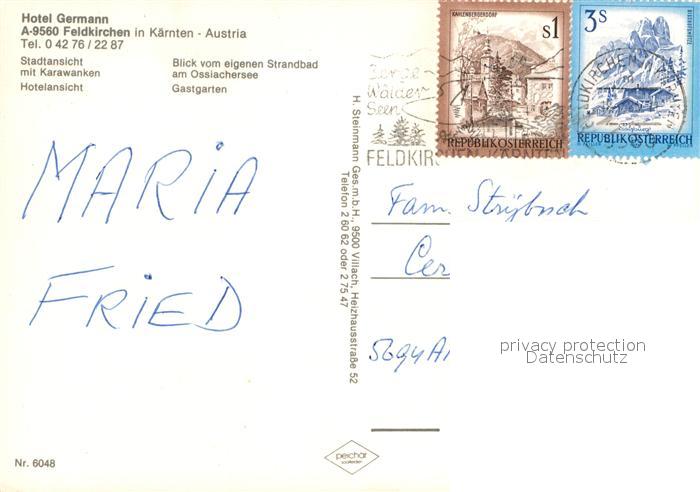 Hotel Germann
A-9560 Feldkirchen in Kärnten - Austria
Tel. 0 42 76 / 22 87
Stadtansicht
mit Karawanken
Hotelansicht
Blick vom eigenen Strandbad
am Ossiachersee
Gastgarten
MARIA
FRIED
Nr. 6048
H. Steinmann Ges.m.b.H., 9500 Villach, Heizhausstraße 52
Telefon 2 60 62 oder 2 75 47
KAHLENBERGERDORF
s1
REPUBLIK ÖSTERREICH
3s
BISCHOFSMÜTZE
REPUBLIK ÖSTERREICH
Berge
Wälder
Seen
FELDKIR
EN KÄRNTEN
Fam.
Cer
5694 A
privacy protection
Datenschutz
perchar